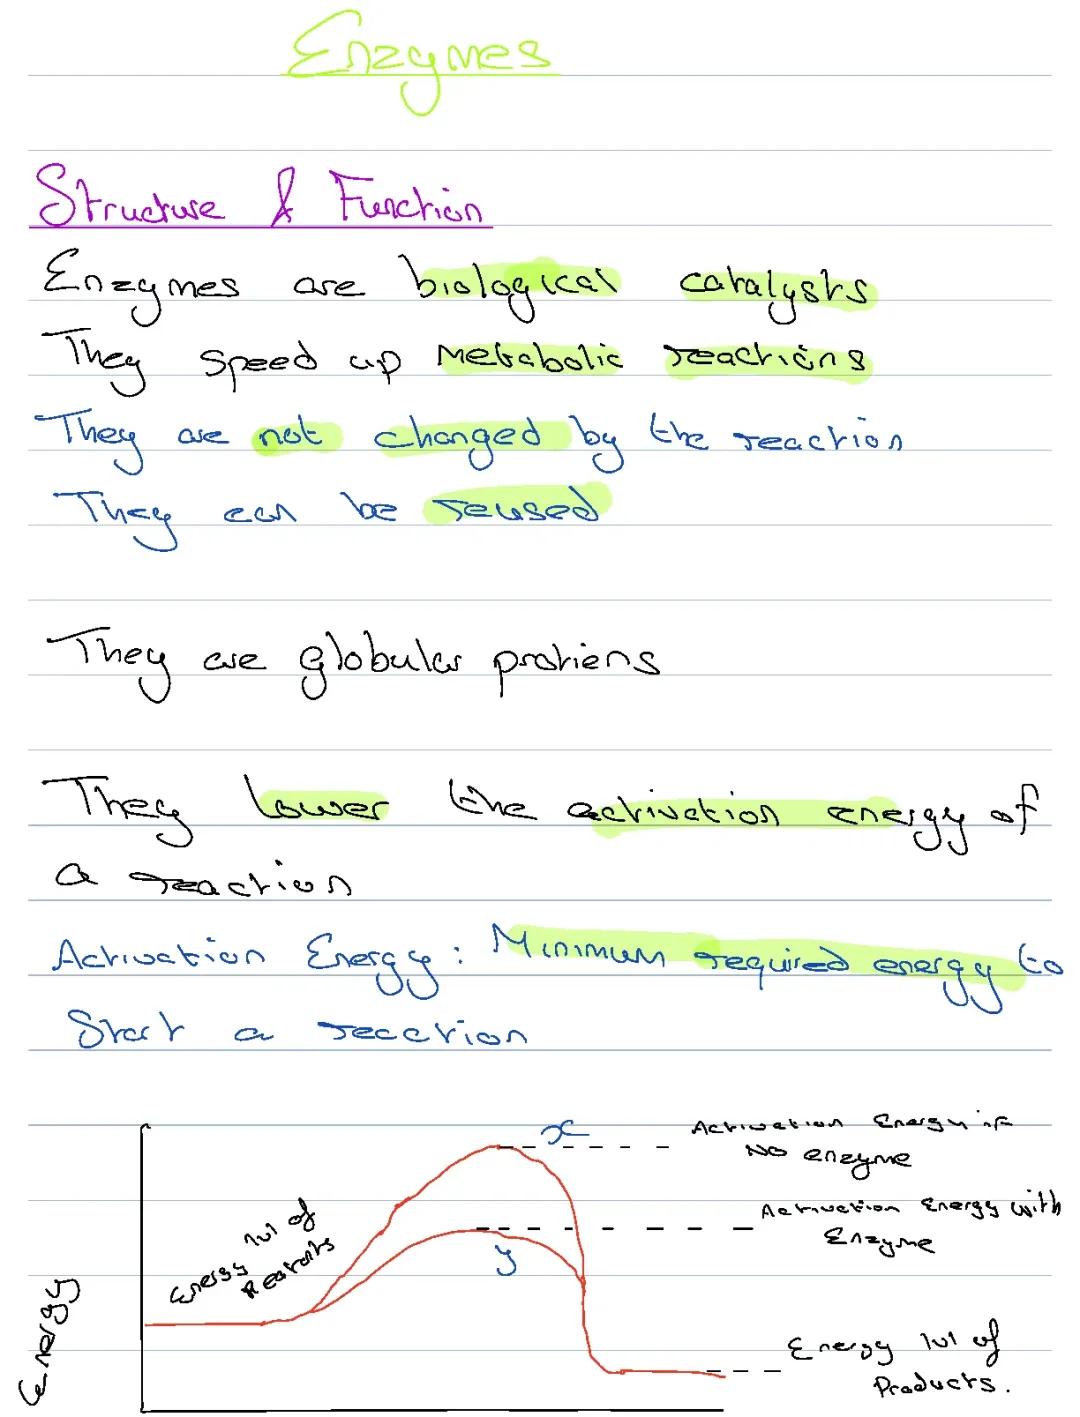 Enzymes
Structure & Function
Enzymes are biological catalysts
They speed up metabolic reactions
They are not changed by the reaction
They can be reused
They are globular protiens
They lower the activation energy of
a reaction
Activation Energy: Minimum required energy to
Start a reaction
x
Activation Energy if
No enzyme
Activation Energy with
Enzyme
y
Energy lvl of
Reactants
Energy
Energy lvl of
Products.